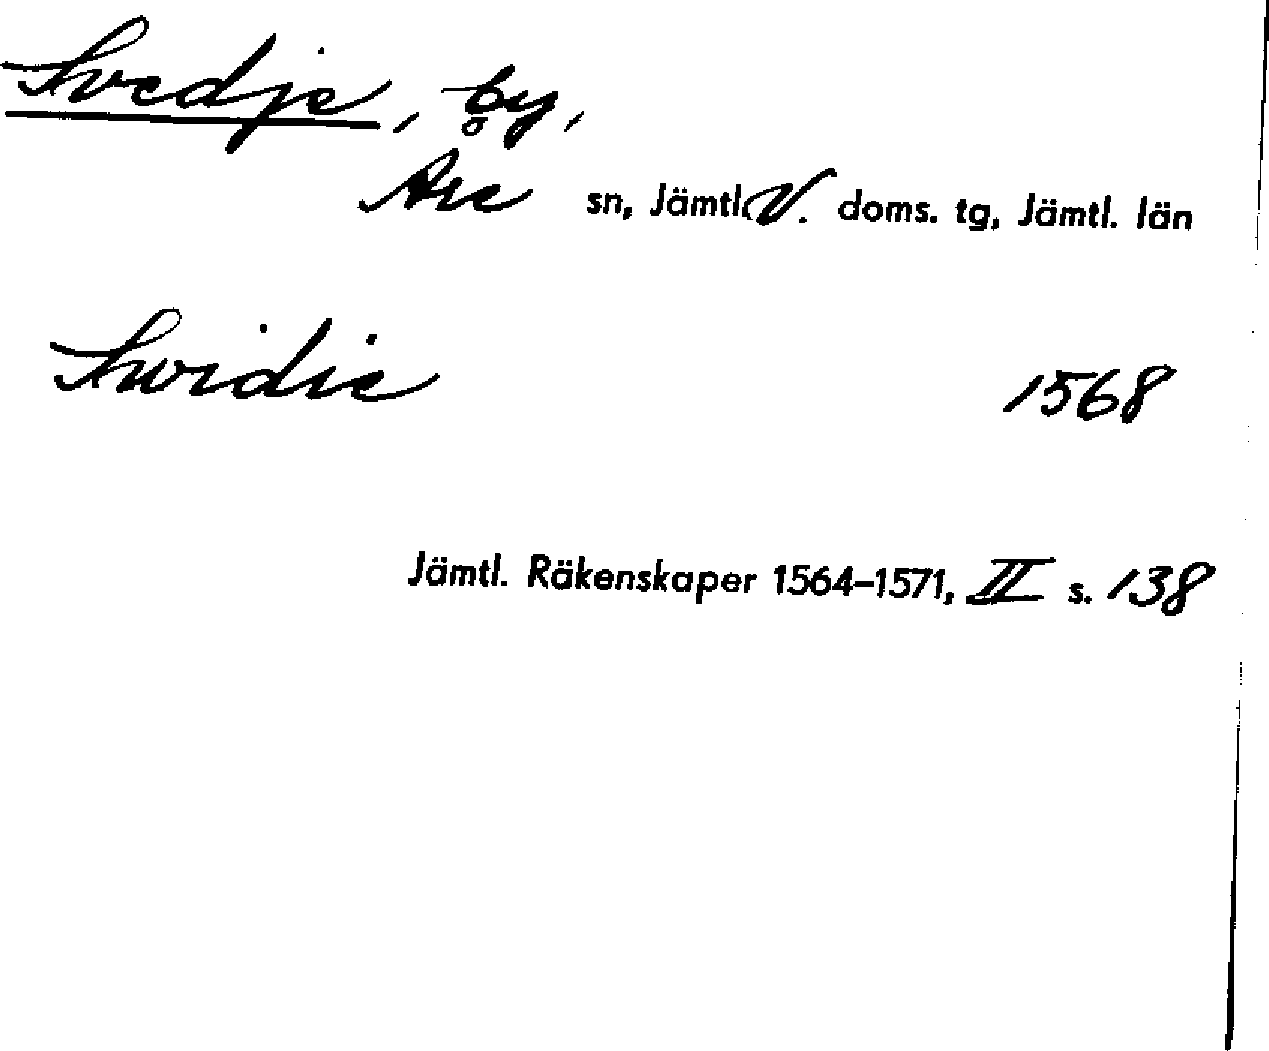 Svedje, by,
Åre sn, Jämtl. V. doms. tg, Jämtl. län
Swidie 1568
Jämtl. Räkenskaper 1564–1571, II s. 138